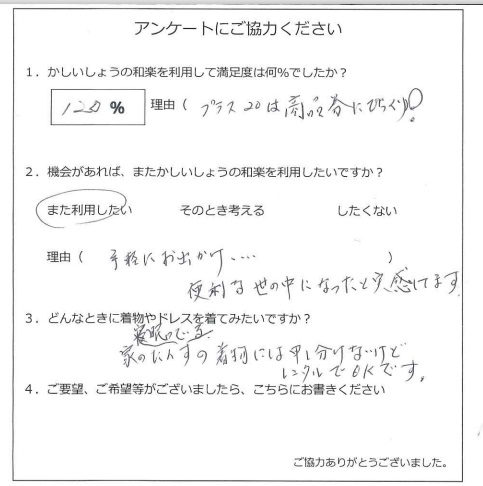 アンケートにご協力ください
1．かしいしょうの和楽を利用して満足度は何%でしたか？
120 % 理由（ プラス20は商品券にびっくり！
2．機会があれば、またかしいしょうの和楽を利用したいですか？
また利用したい そのとき考える したくない
理由（ 手軽にお出かけ・・・ ）
便利な世の中になったと実感してます
3．どんなときに着物やドレスを着てみたいですか？
家のたんすの着物には申し分けないけど
レンタルでOKです。
4．ご要望、ご希望等がございましたら、こちらにお書きください
ご協力ありがとうございました。